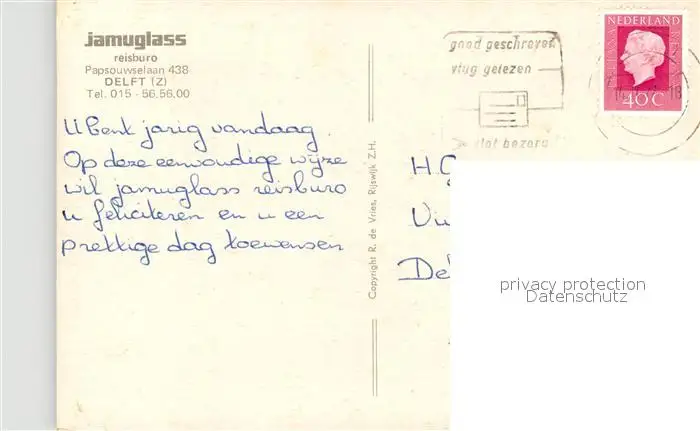 jamuglass
reisburo
Papsouwselaan 438
DELFT (Z)
Tel. 015 - 56.56.00
U bent jarig vandaag.
Op deze eenvoudige wijze
wil jamuglass reisburo
u feliciteren en u een
prettige dag toewensen
Copyright R. de Vries, Rijswijk Z.H.
goed geschreven
vlug gelezen
vlot bezorgd
NEDERLAND
40 C
H.
De
privacy protection
Datenschutz